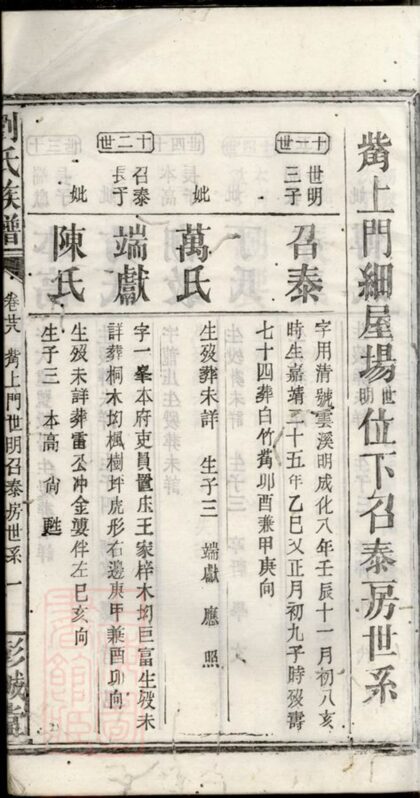 觜上門細屋塲世明位下召泰房世系
十一世
世明三子
召泰
字用清號雲溪明成化八年壬辰十一月初八亥
時生嘉靖三十五年乙巳又正月初九子時殁壽
七十四葬白竹觜卯酉兼甲庚向
妣
萬氏
生殁葬未詳 生子三 端獻 應 照
十二世
召泰長子
端獻
字一峯本府吏員置庄王家梓木坳巨富生殁未
詳葬桐木坳楓樹坪虎形右邊庚甲兼酉卯向
妣
陳氏
生殁未詳葬雷公冲金婆伴左巳亥向
生子三 本高 尙 甦
劉氏族譜
卷廿八 觜上門世明召泰房世系 一
彭城堂